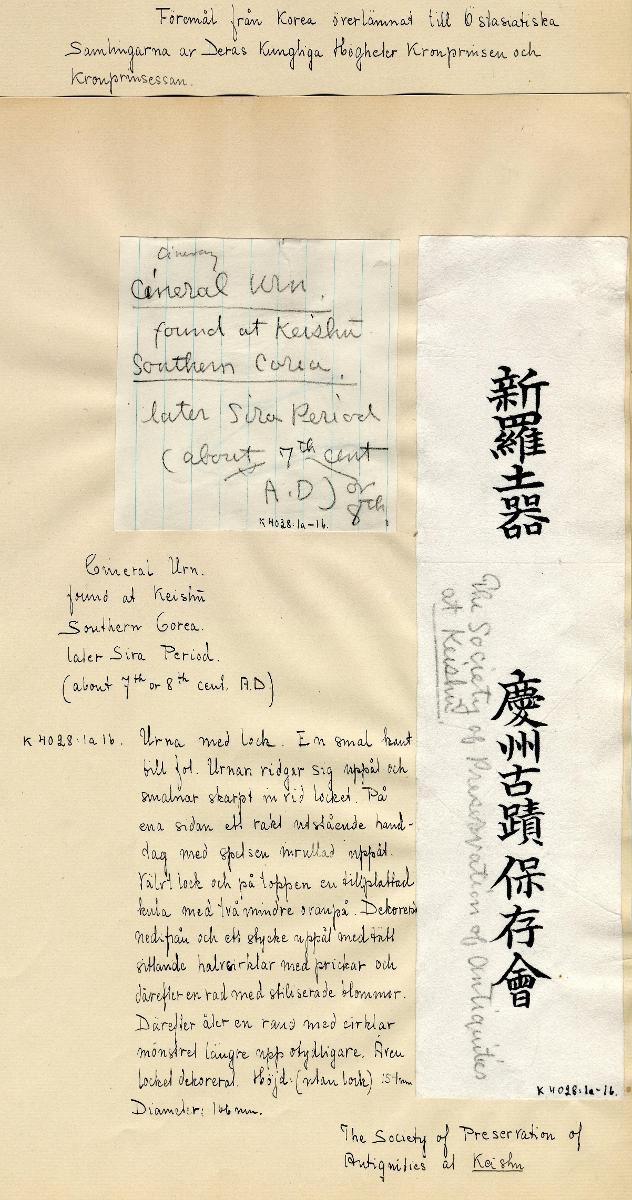 Föremål från Korea överlämnat till Östasiatiska
Samlingarna av Deras Kungliga Högheter Kronprinsen och
Kronprinsessan.
Cineral Urn.
found at Keishū
Southern Corea.
later Sira Period
(about 7th cent
A.D) or
8th
K 4028:1a-1b.
新羅土器
慶州古蹟保存會
The Society of Preservation of Antiquities
at Keishū
K 4028:1a-1b.
Cineral Urn.
found at Keishū
Southern Corea.
later Sira Period.
(about 7th or 8th cent. A.D)
K 4028:1a 1b. Urna med lock. En smal kant
till fot. Urnan vidgar sig uppåt och
smalnar skarpt in vid locket. På
ena sidan ett rakt utstående hand-
tag med spetsen inrullad uppåt.
Välvt lock och på toppen en tillplattad
kula med två mindre ovanpå. Dekorerad
nedifrån och ett stycke uppåt med tätt
sittande halvcirklar med prickar och
därefter en rad med stiliserade blommor.
Därefter åter en rand med cirklar
mönstret längre upp otydligare. Även
locket dekorerat. Höjd: (utan lock)
Diameter: 166 mm.
The Society of Preservation of
Antiquities at Keishu